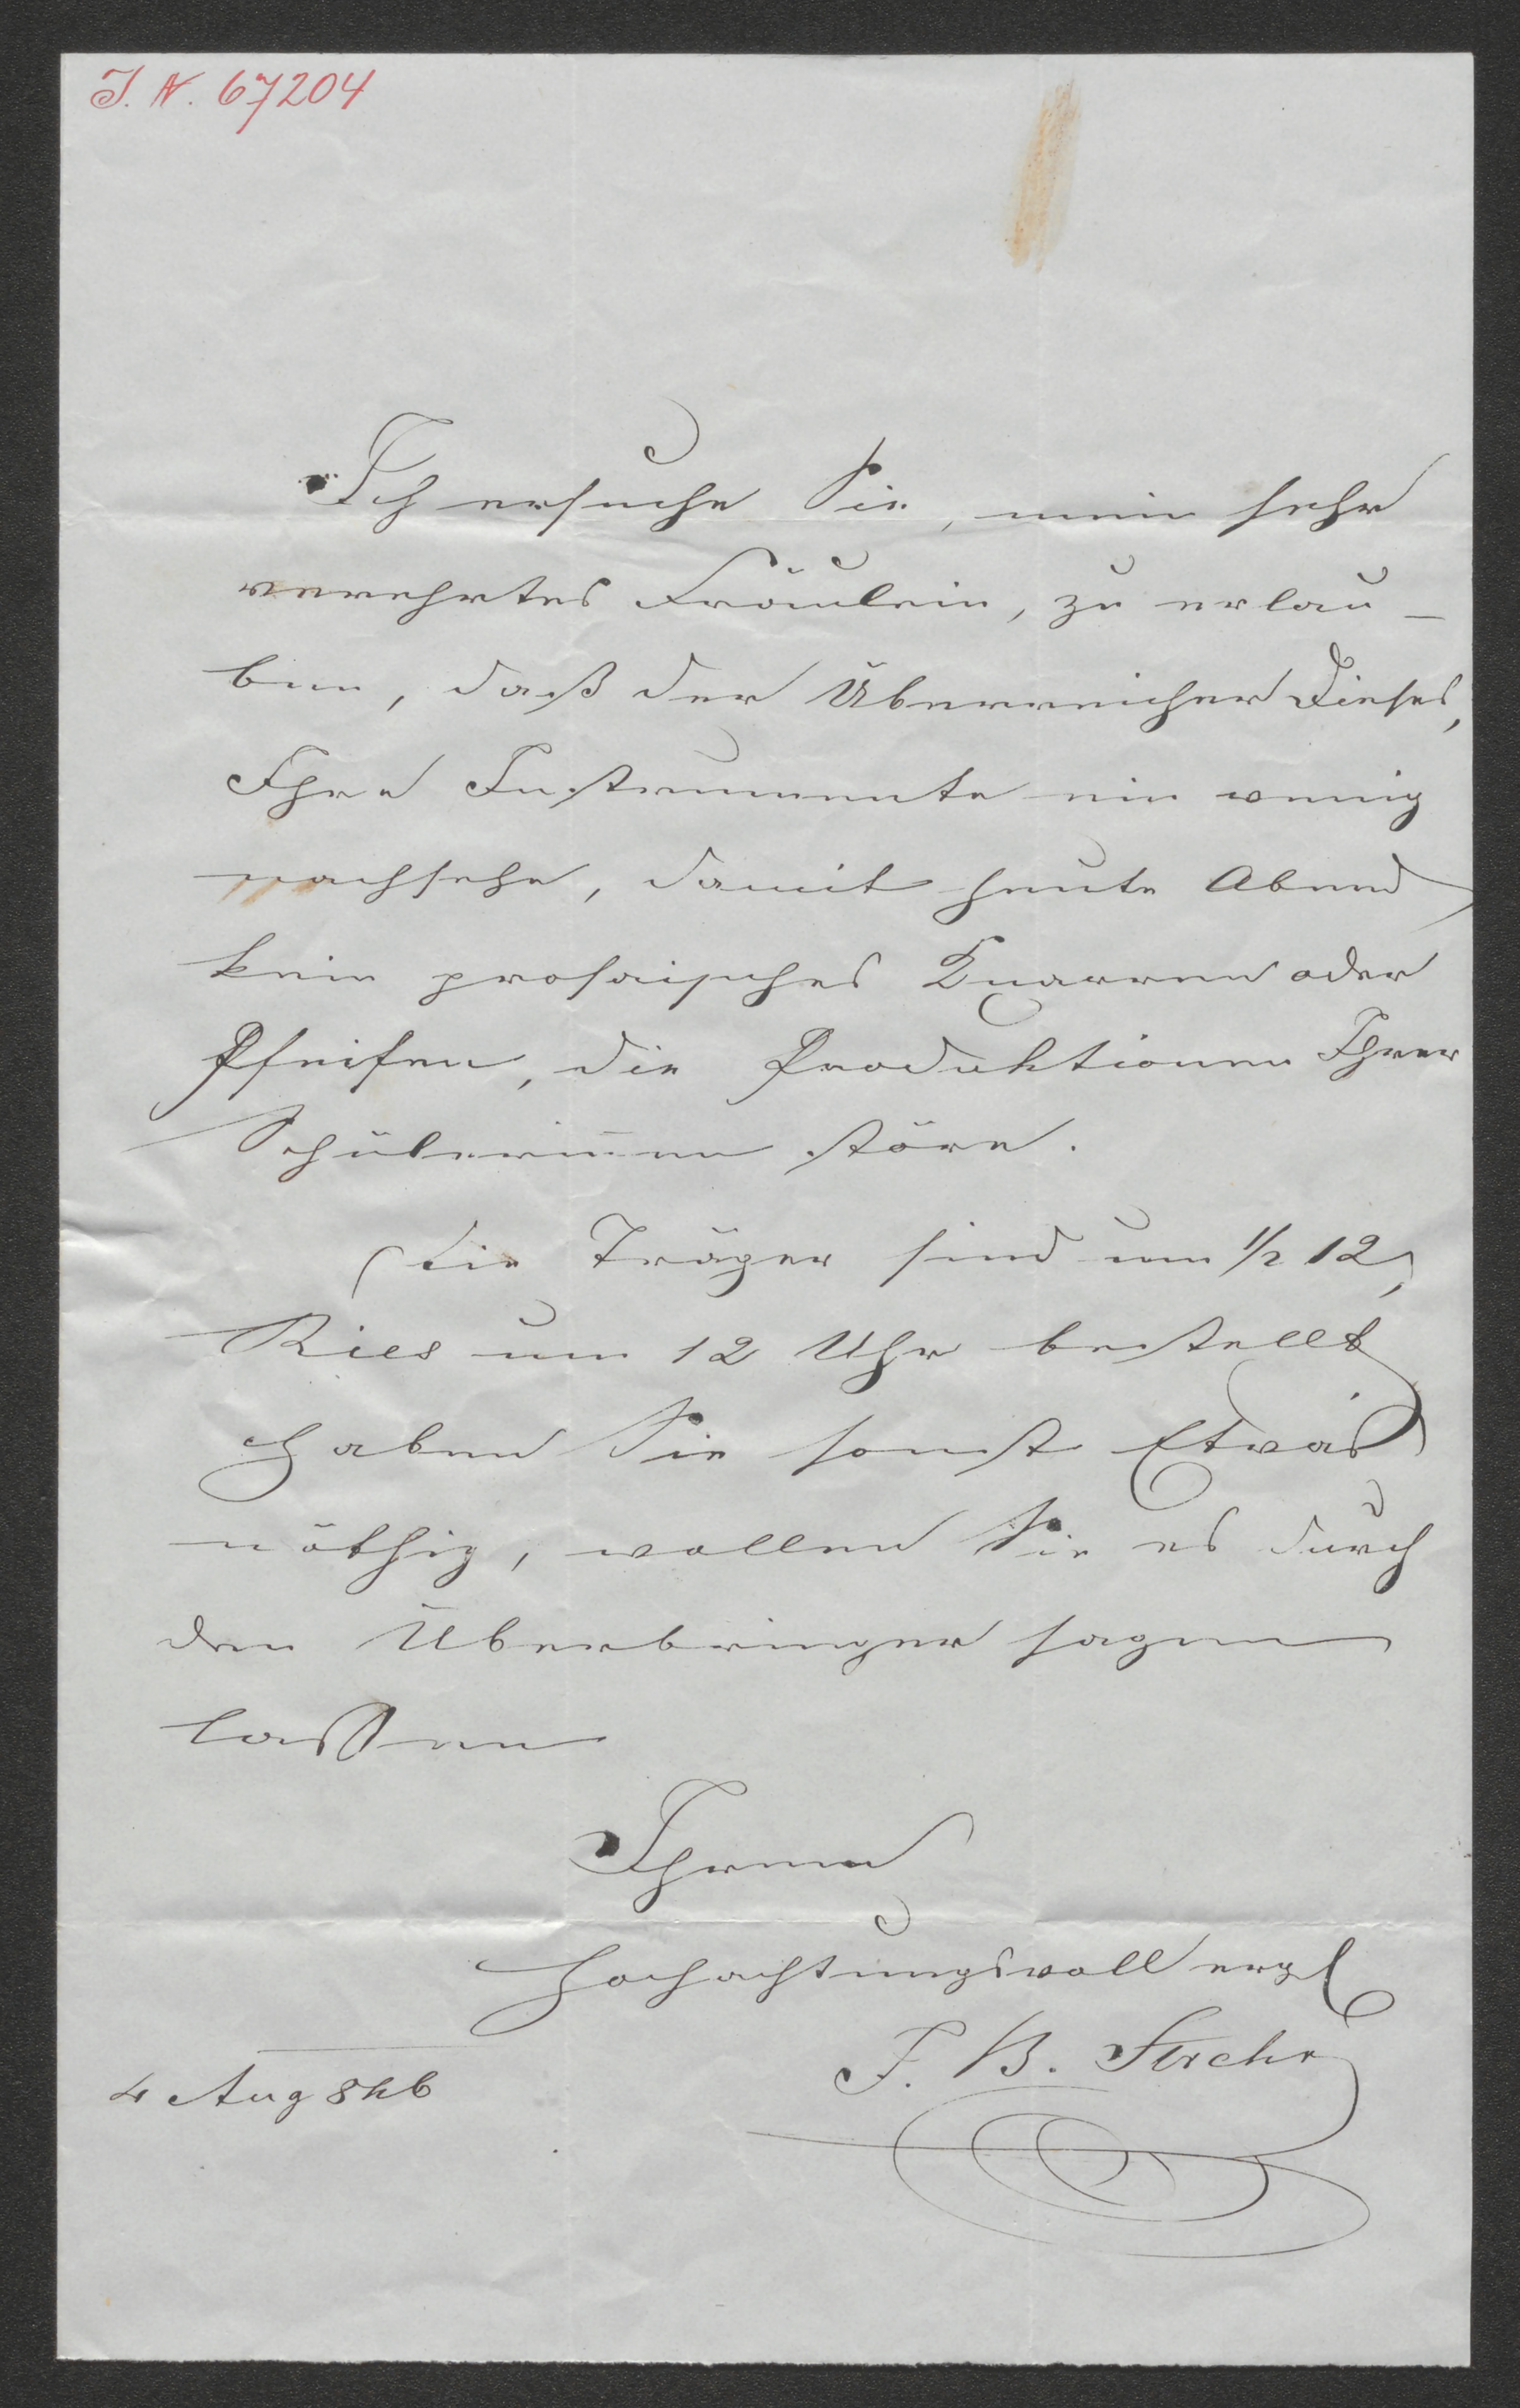 J. N. 67204
Ich ersuche Sie, mein sehr
verehrtes Fräulein, zu erlau-
ben, daß der Überreicher Dieses,
Ihre Instrumente ein wenig
nachsehe, damit heute Abend
kein prosaisches Knarren oder
Pfeifen, die Produktionen Ihrer
Schülerin̅en störe.
Die Träger sind um 1/2 12,
Ries um 12 Uhr bestellt
Haben Sie sonst Etwas
nöthig, wollen Sie es durch
den Überbringer sagen
lassen
Ihrem
hochachtungsvoll erg
J. B. Strehr
4 Aug 846